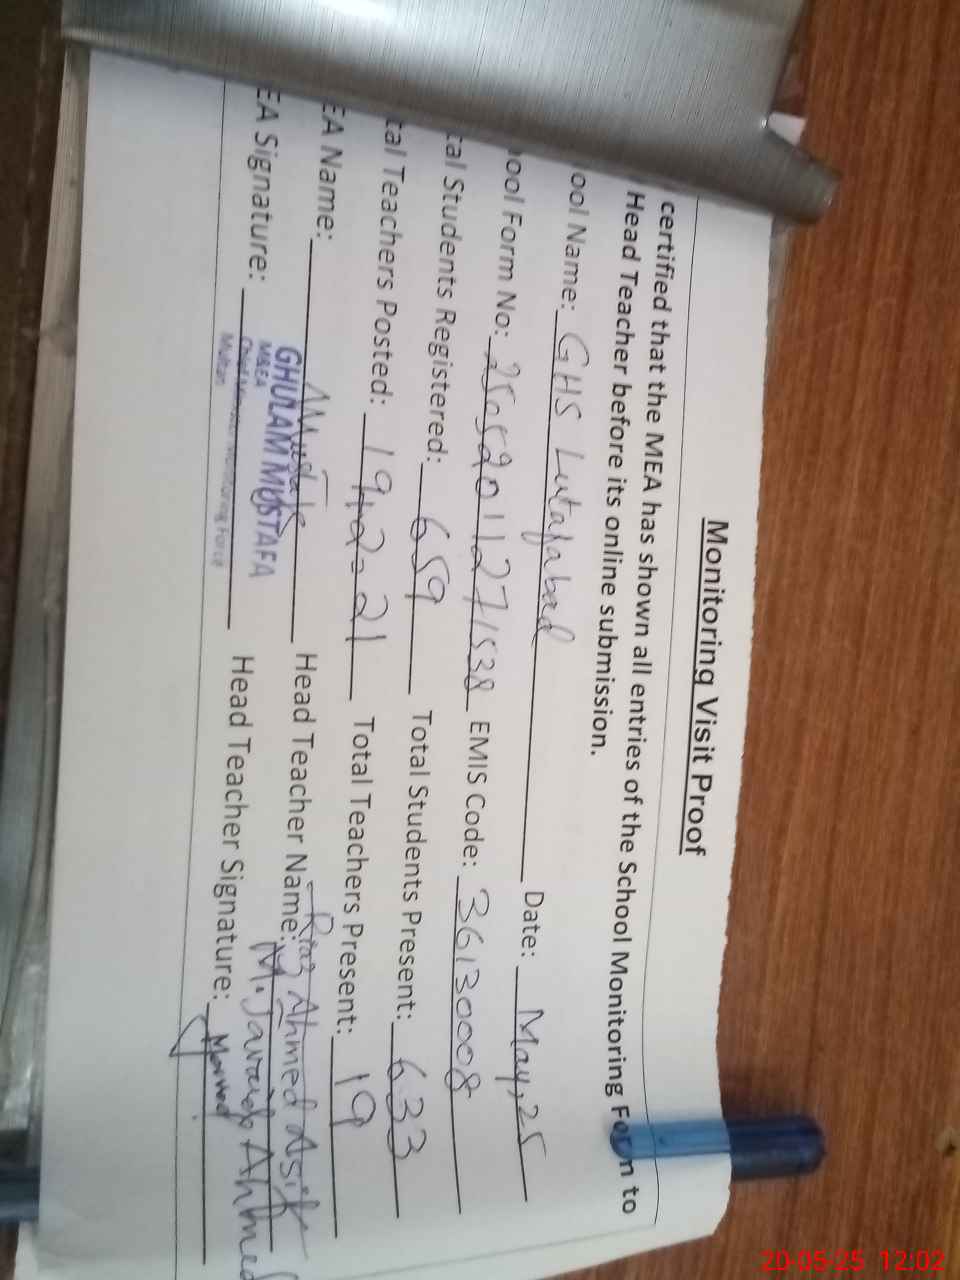 Monitoring Visit Proof
certified that the MEA has shown all entries of the School Monitoring Form to
Head Teacher before its online submission.
ool Name: GHS Lutafabad Date: May, 25
ool Form No: EMIS Code: 36130008
tal Students Registered: 659 Total Students Present: 633
tal Teachers Posted: 19+2=21 Total Teachers Present: 19
EA Name: Head Teacher Name: Riaz Ahmed Asif
M. Javaid Ahmed
EA Signature: Head Teacher Signature:
GHULAM MUSTAFA
M&EA
Chief Minister Monitoring Force
Multan
20-05-25 12:02